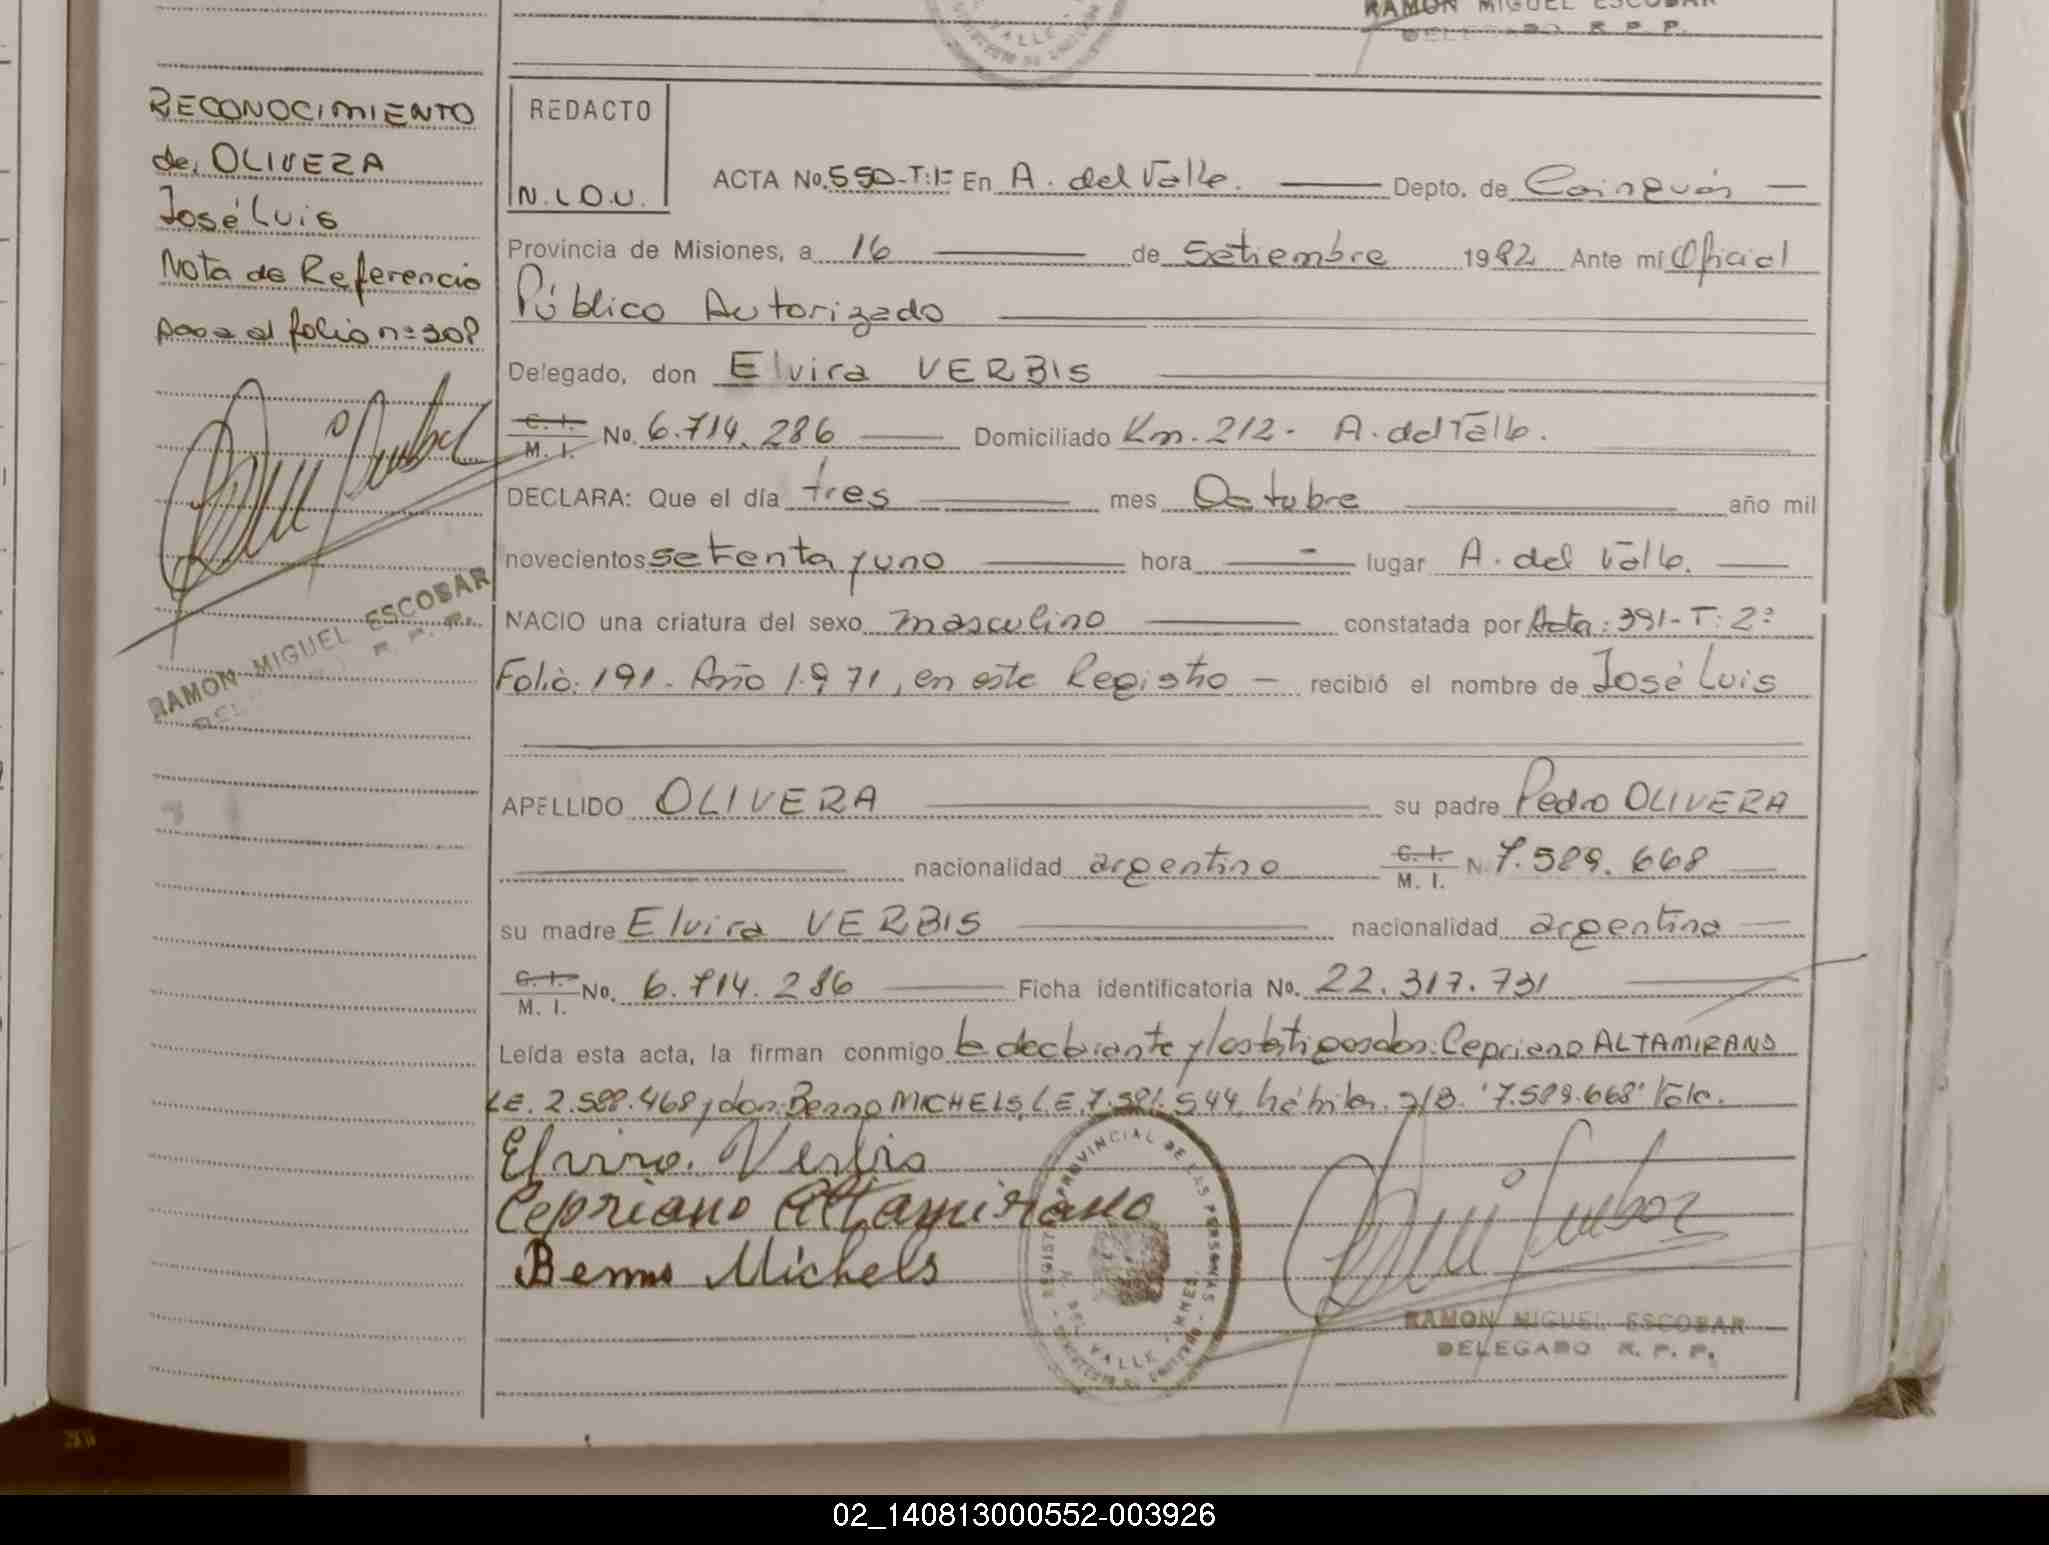 RAMON MIGUEL ESCOBAR
DELEGADO R. P. P.
VALLE
RECONOCIMIENTO
de, OLIVERA
José Luis
Nota de Referencia
pasa al folio nº 308
RAMON MIGUEL ESCOBAR
DEL R. P. P.
REDACTO
N.L.O.U.
ACTA No. 550-T:1º En A. del Valle. Depto. de Cainguás
Provincia de Misiones, a 16 de Setiembre 1982 Ante mí Oficial
Público Autorizado
Delegado, don Elvira VERBIS
C. I.
M. I. No. 6.714.286 Domiciliado Km. 212- A. del Valle.
DECLARA: Que el día tres mes Octubre año mil
novecientos setenta y uno hora - lugar A. del Valle.
NACIO una criatura del sexo masculino constatada por Acta: 391-T: 2º
Folio: 191- Año 1.971, en este Registro - recibió el nombre de José Luis
APELLIDO OLIVERA su padre Pedro OLIVERA
nacionalidad argentino C. I.
M. I. N 7.589.668
su madre Elvira VERBIS nacionalidad argentina
C. I.
M. I. No. 6.714.286 Ficha identificatoria No. 22.317.731
Leída esta acta, la firman conmigo la declarante y los testigos don: Cepriano ALTAMIRANO
LE. 2.588.468 y don: Benno MICHELS, L.E. 7.581.544, hábiles. "7.589.668" Vale.
Elvira. Verbis
Cepriano Altamirano
Benno Michels
REGISTRO PROVINCIAL DE LAS PERSONAS
DEL VALLE - MNES
RAMON MIGUEL ESCOBAR
DELEGADO R. P. P.
02_140813000552-003926